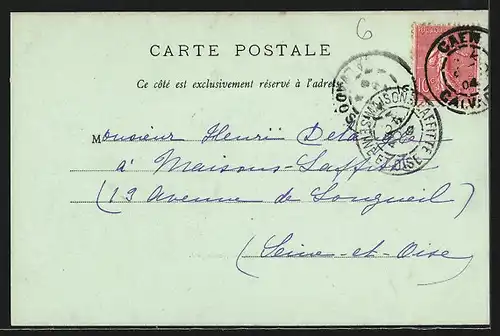 6
CARTE POSTALE
Ce côté est exclusivement réservé à l'adresse
CAEN
CALVADOS
MAISONS-LAFFITTE
SEINE-ET-OISE
Monsieur Henri
à Maisons-Laffitte
(13 Avenue de Longueil)
(Seine-et-Oise)